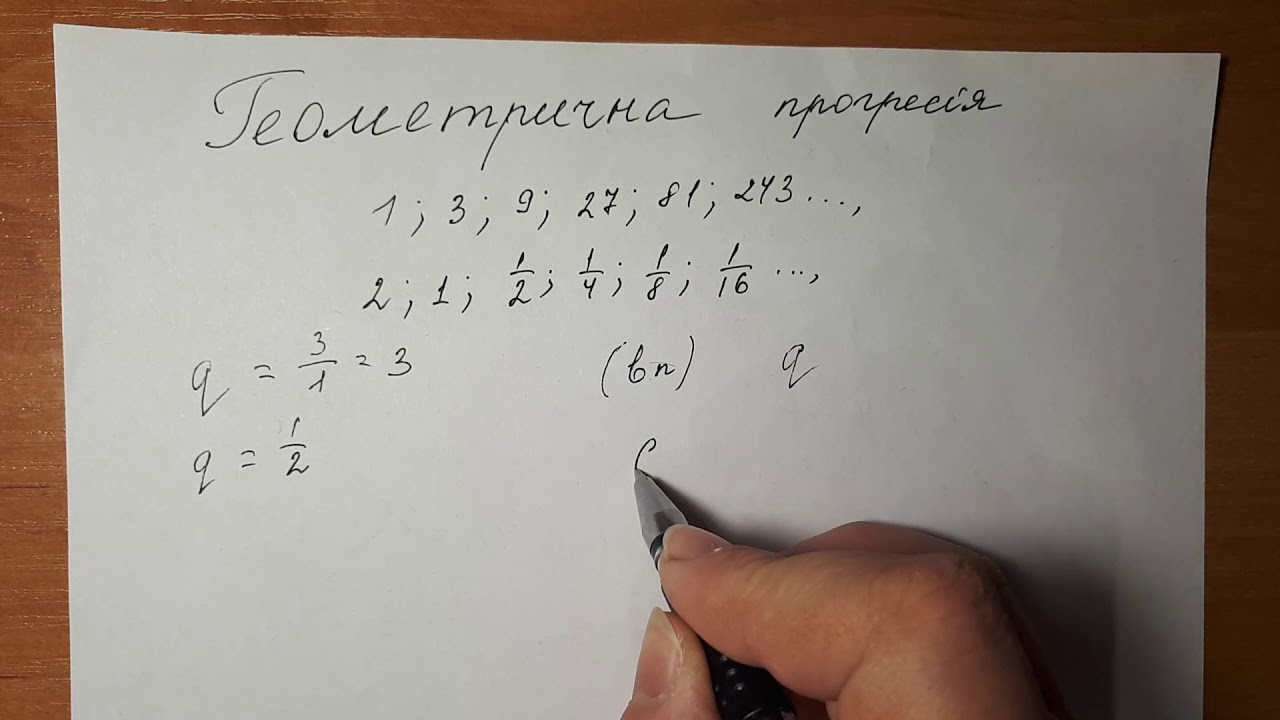 Геометрична прогресія
1; 3; 9; 27; 81; 243...,
2; 1; 1/2; 1/4; 1/8; 1/16 ...,
q = 3/1 = 3 (bn) q
q = 1/2